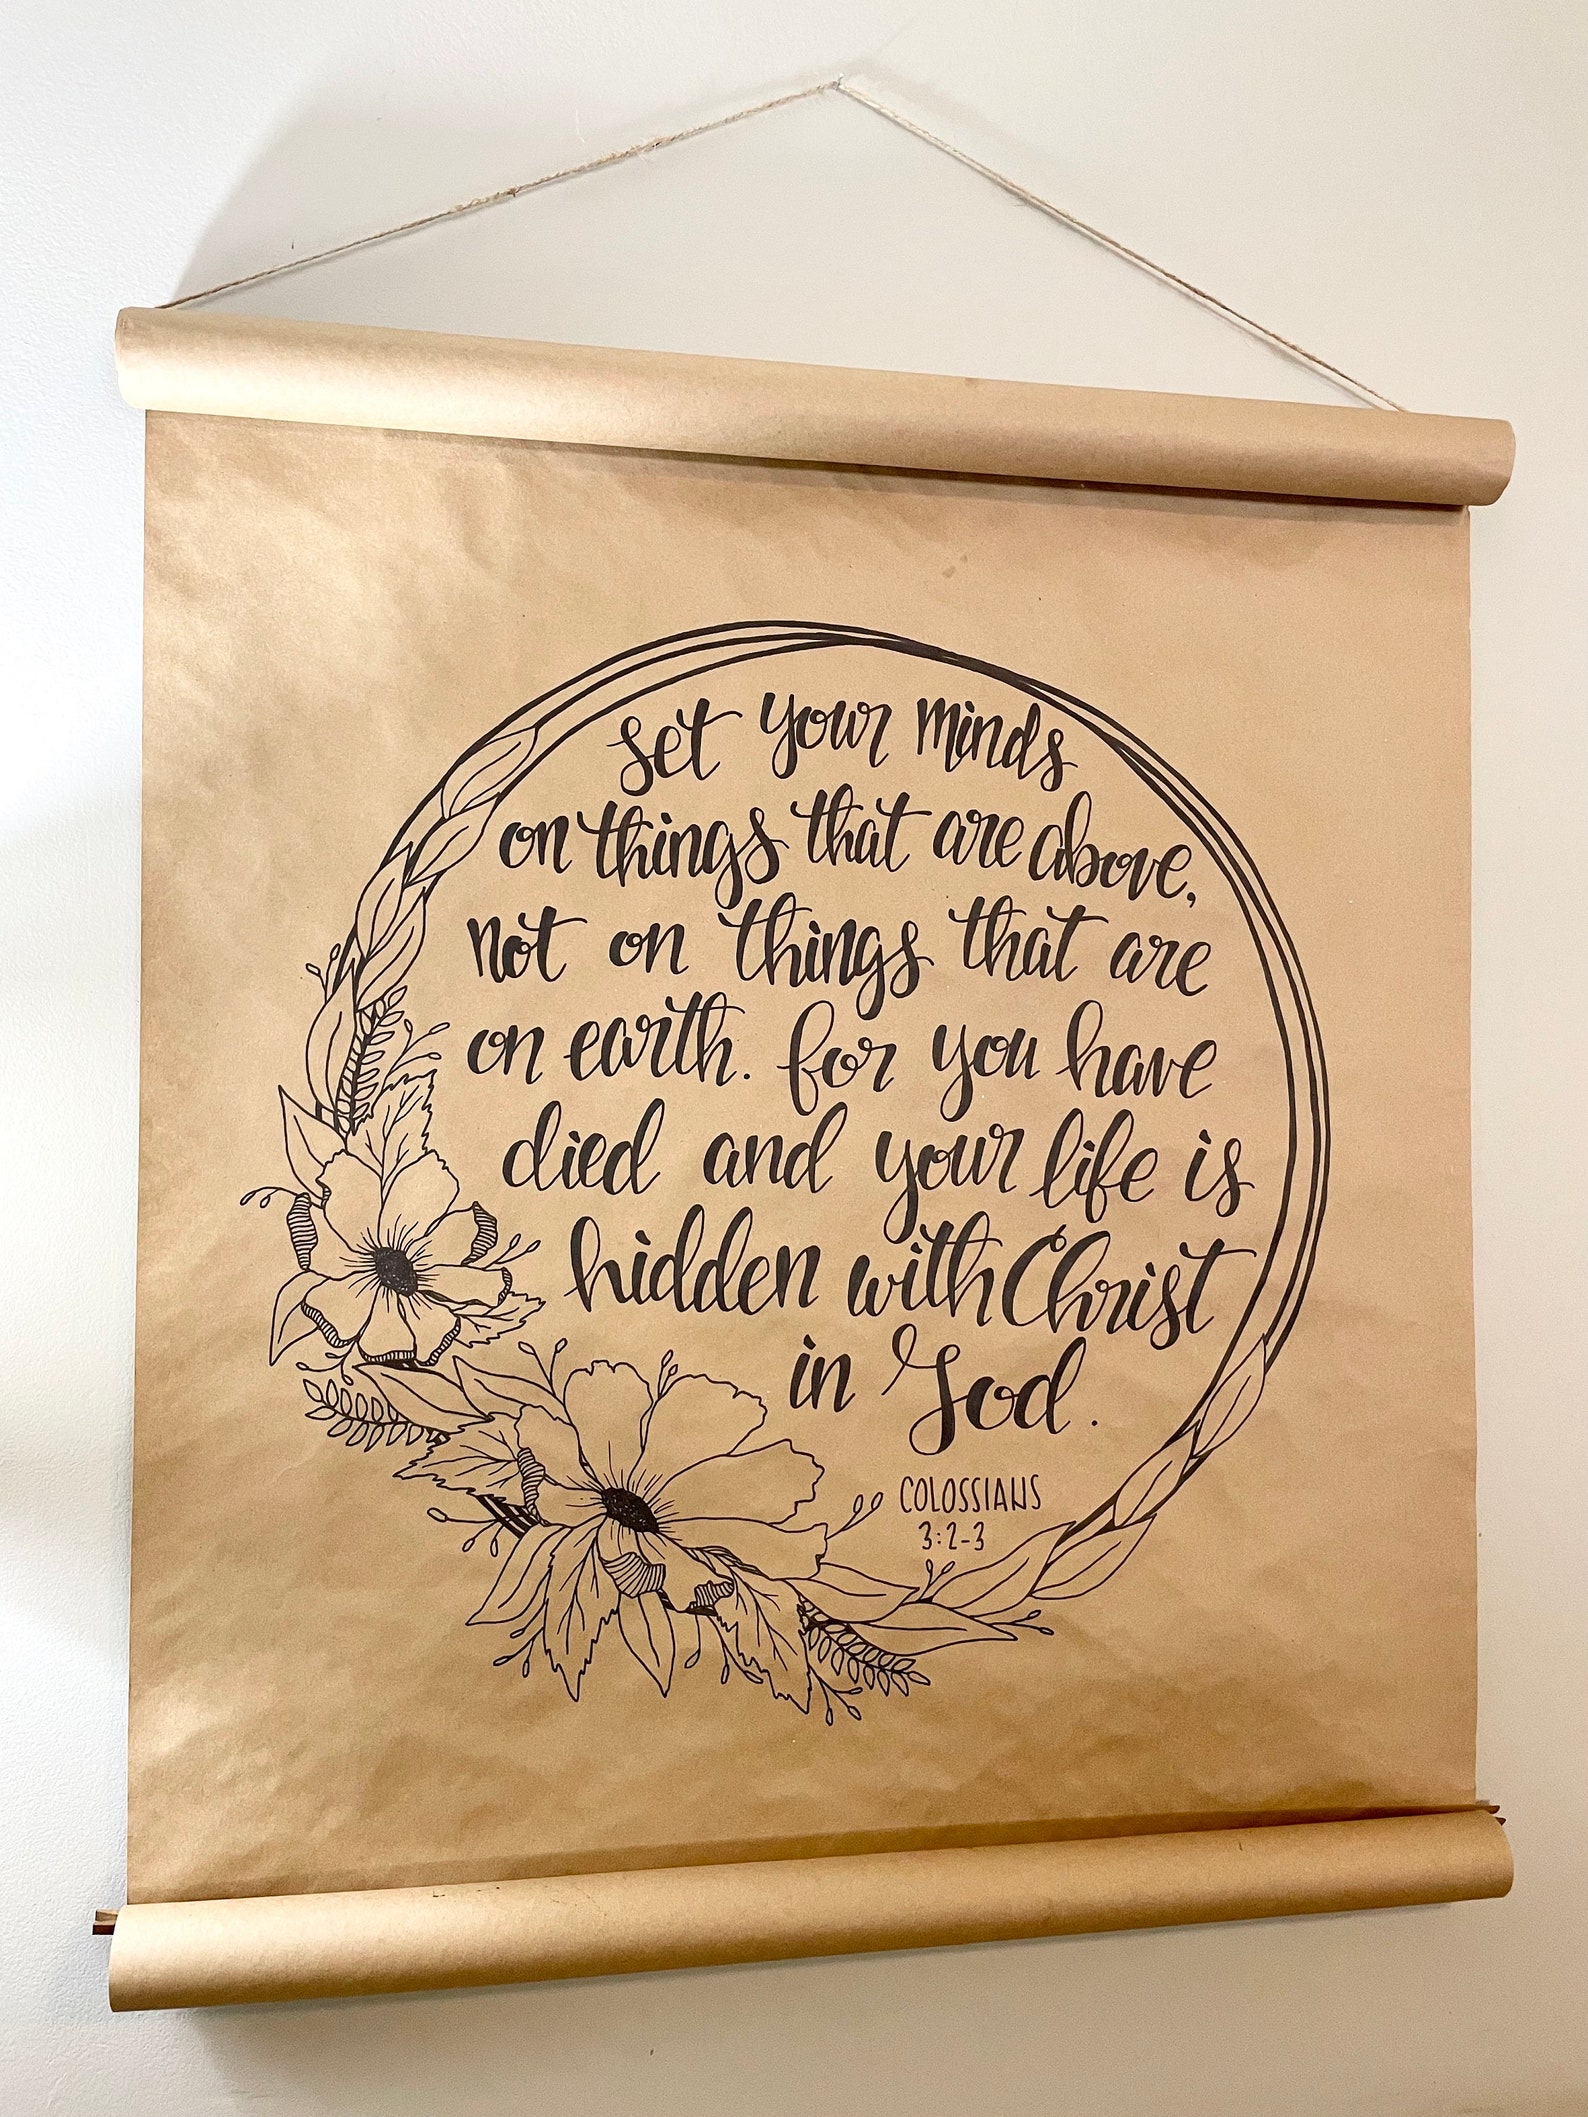 set your minds
on things that are above,
not on things that are
on earth. for you have
died and your life is
hidden with Christ
in God.
COLOSSIANS
3:2-3